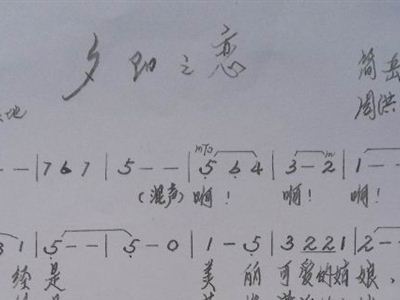 夕阳之恋
简岳
地 周洪
- - | 7 6 7 | 5 - - | 5 6 4 | 3 - 2 | 1 - -
(混声) 啊! 啊! 啊!
3 1 | 5 - - | 5 - 0 | 1 - 5 | 3 2 2 1 | 2 - -
是 美 丽 可爱的姑娘,